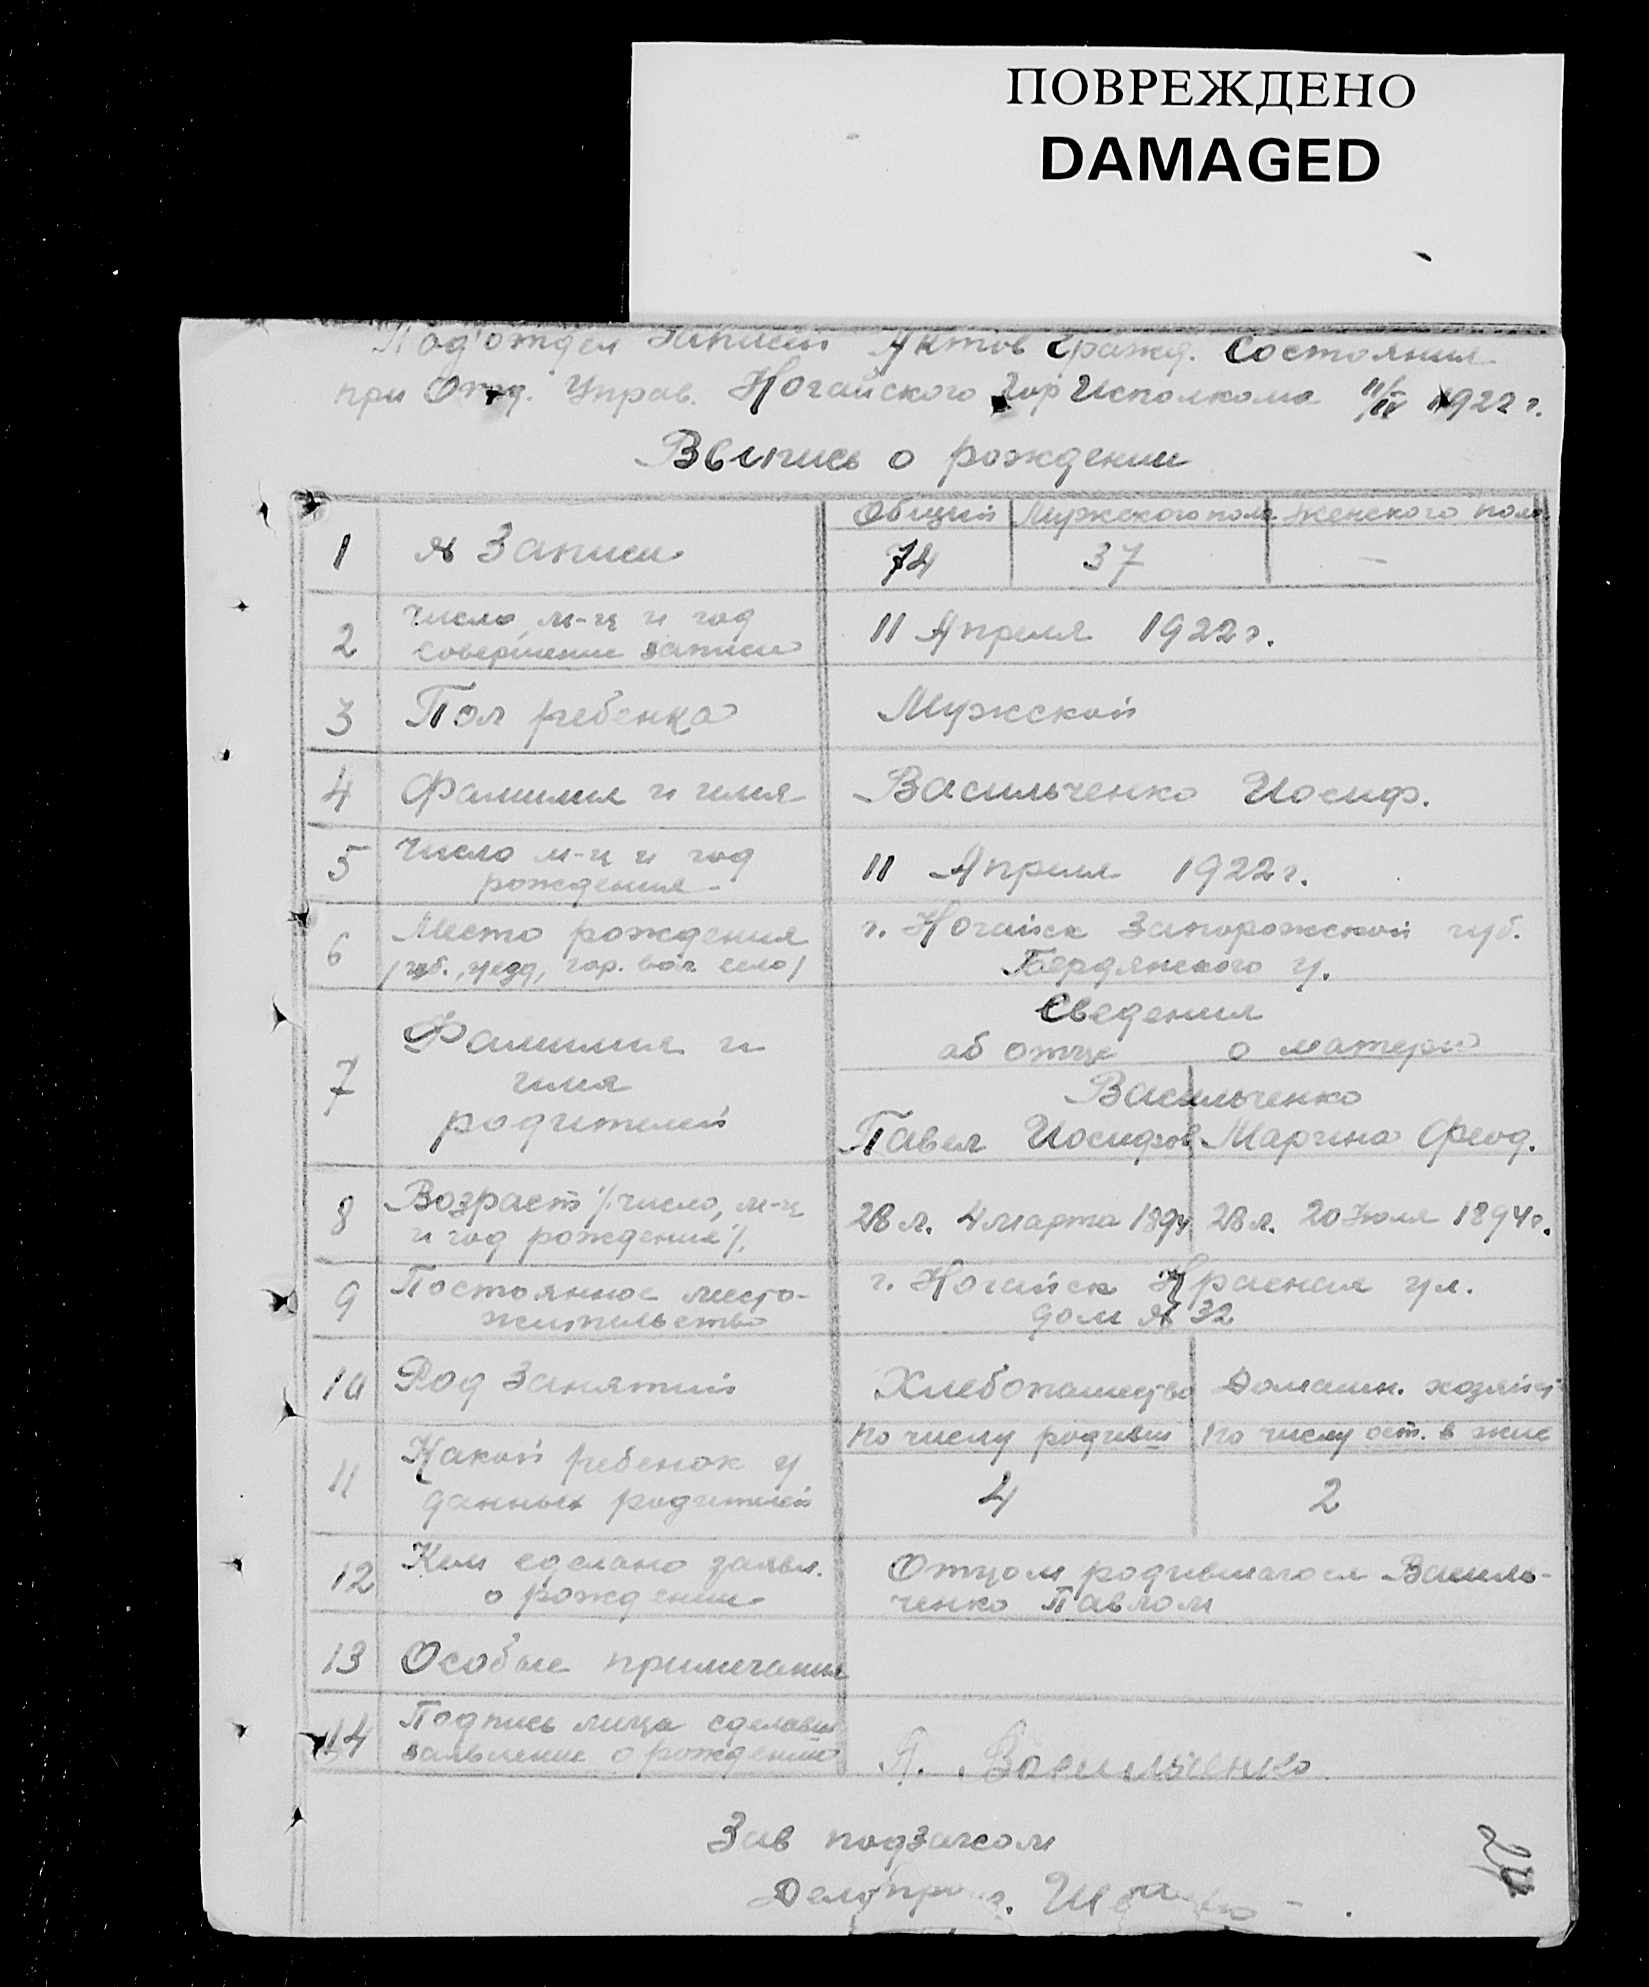 ПОВРЕЖДЕНО
DAMAGED
Под'отдел Записи Актов Гражд. Состояния
при Отд. Управ. Ногайского ГорИсполкома 11/IV 1922 г.
Выпись о рождении
1 № Записи
Общий Мужского пола Женского пола
74 37 —
2 Число, м-ц и год
совершения записи
11 Апреля 1922 г.
3 Пол ребенка Мужской
4 Фамилия и имя Васильченко Иосиф.
5 Число м-ц и год
рождения
11 Апреля 1922 г.
6 Место рождения
/губ., уезд, гор. вол. село/
г. Ногайск Запорожской губ.
Бердянского у.
7 Фамилия и
имя
родителей
Сведения
об отце о матери
Васильченко
Павел Иосифов Марина Феод.
8 Возраст /число, м-ц
и год рождения/.
28 л. 4 марта 1894 28 л. 20 Июля 1894 г.
9 Постоянное место-
жительство
г. Ногайск Красная ул.
дом № 32
10 Род Занятий Хлебопашество Домашн. хозяйст
11 Какой ребенок у
данных родителей
по числу родивш по числу ост. в жив
4 2
12 Кем сделано заявл.
о рождении
Отцом родившагося Василь-
ченко Павлом
13 Особые примечания
14 Подпись лица сделавш
заявление о рождении
П. Васильченко
Зав подзагсом
Делопр